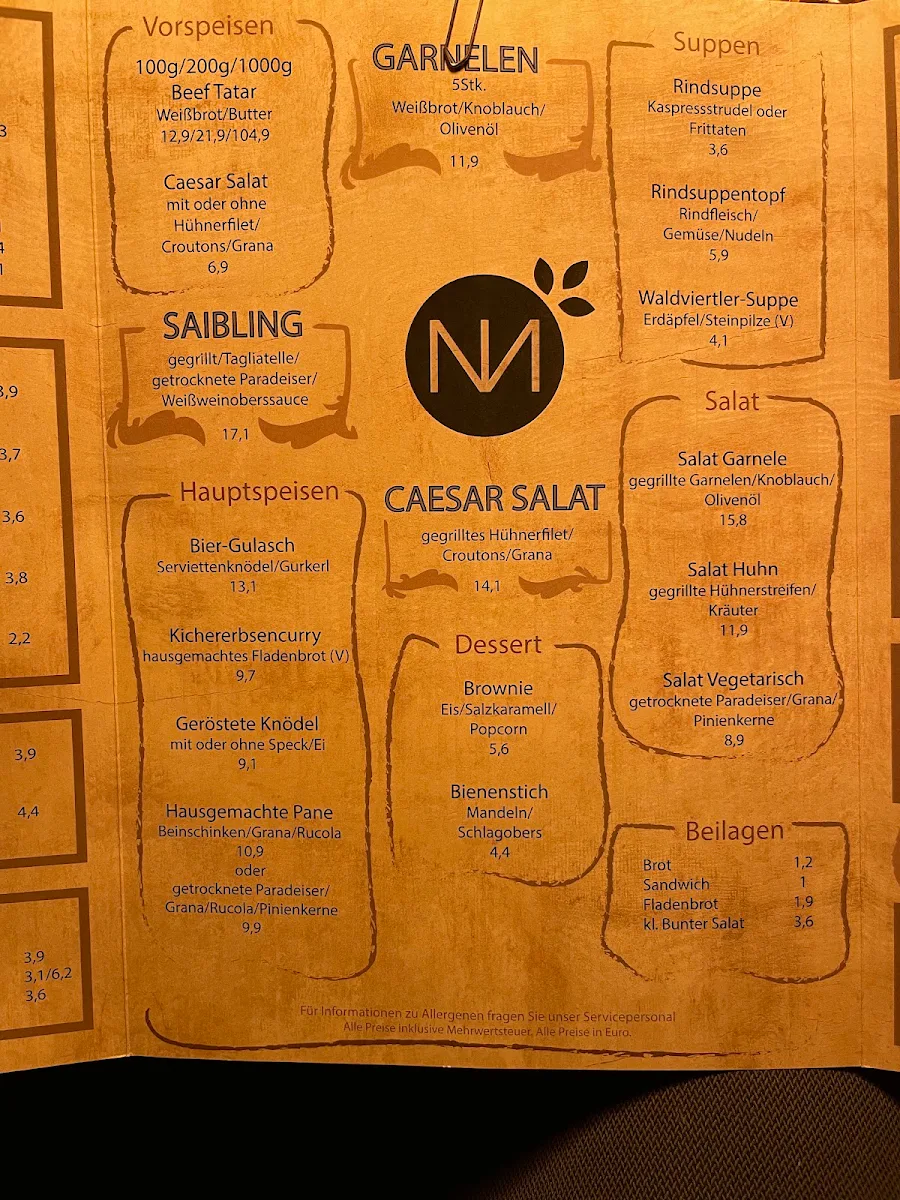 Vorspeisen
100g/200g/1000g
Beef Tatar
Weißbrot/Butter
12,9/21,9/104,9
Caesar Salat
mit oder ohne
Hühnerfilet/
Croutons/Grana
6,9
GARNELEN
5Stk.
Weißbrot/Knoblauch/
Olivenöl
11,9
Suppen
Rindsuppe
Kaspressstrudel oder
Frittaten
3,6
Rindsuppentopf
Rindfleisch/
Gemüse/Nudeln
5,9
Waldviertler-Suppe
Erdäpfel/Steinpilze (V)
4,1
SAIBLING
gegrillt/Tagliatelle/
getrocknete Paradeiser/
Weißweinoberssauce
17,1
Hauptspeisen
Bier-Gulasch
Serviettenknödel/Gurkerl
13,1
Kichererbsencurry
hausgemachtes Fladenbrot (V)
9,7
Geröstete Knödel
mit oder ohne Speck/Ei
9,1
Hausgemachte Pane
Beinschinken/Grana/Rucola
10,9
oder
getrocknete Paradeiser/
Grana/Rucola/Pinienkerne
9,9
CAESAR SALAT
gegrilltes Hühnerfilet/
Croutons/Grana
14,1
Dessert
Brownie
Eis/Salzkaramell/
Popcorn
5,6
Bienenstich
Mandeln/
Schlagobers
4,4
Salat
Salat Garnele
gegrillte Garnelen/Knoblauch/
Olivenöl
15,8
Salat Huhn
gegrillte Hühnerstreifen/
Kräuter
11,9
Salat Vegetarisch
getrocknete Paradeiser/Grana/
Pinienkerne
8,9
Beilagen
Brot 1,2
Sandwich 1
Fladenbrot 1,9
kl. Bunter Salat 3,6
Für Informationen zu Allergenen fragen Sie unser Servicepersonal
Alle Preise inklusive Mehrwertsteuer. Alle Preise in Euro.
3,9
3,7
3,6
3,8
2,2
3,9
4,4
3,9
3,1/6,2
3,6